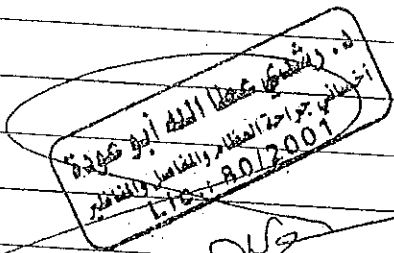 د. رشدي عطا الله أبو عودة
أخصائي جراحة العظام والمفاصل والمناظير
LIC.: 80/2001